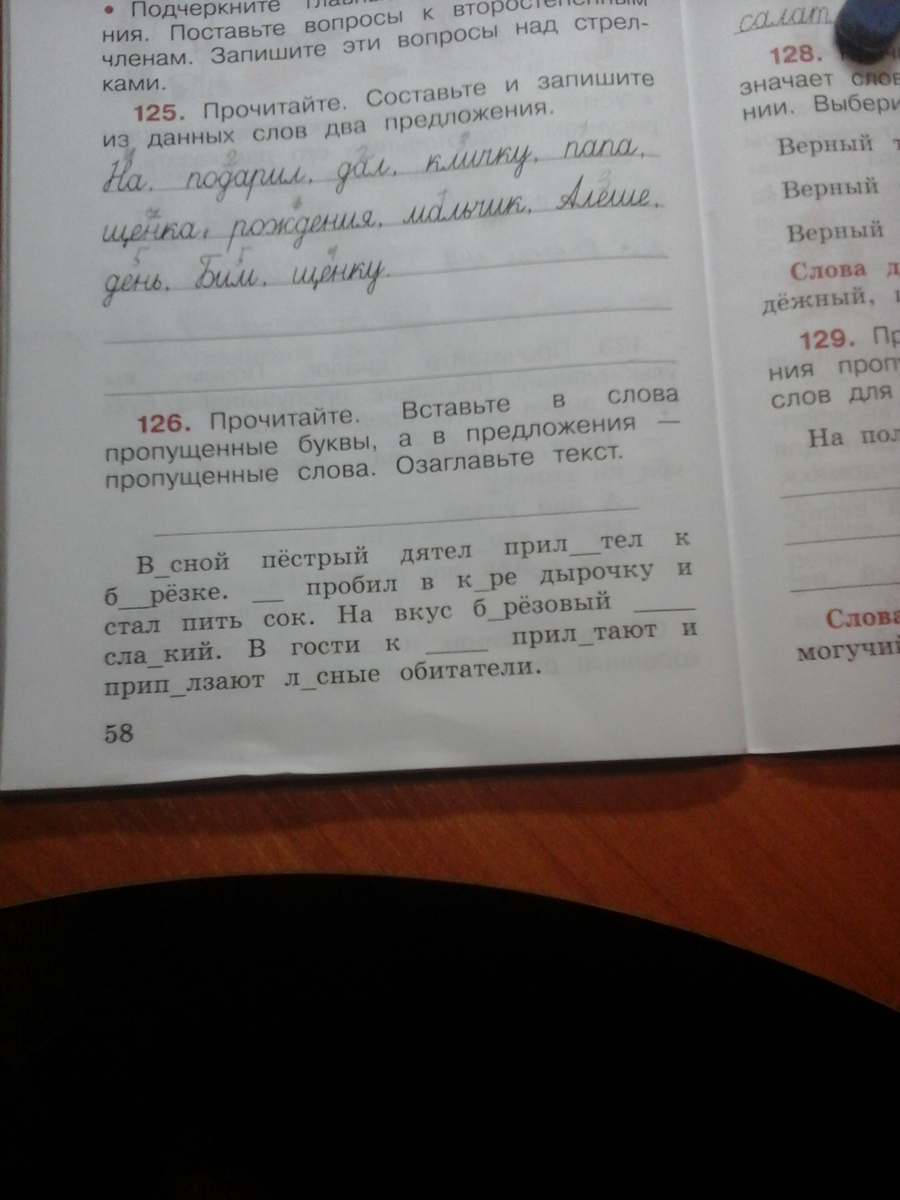 • Подчеркните
ния. Поставьте вопросы к второстепенным
членам. Запишите эти вопросы над стрел-
ками.
125. Прочитайте. Составьте и запишите
из данных слов два предложения.
На, подарил, дал, кличку, папа,
щенка, рождения, мальчик, Алёше,
день, Бим, щенку.
126. Прочитайте. Вставьте в слова
пропущенные буквы, а в предложения —
пропущенные слова. Озаглавьте текст.
В_сной пёстрый дятел прил__тел к
б__рёзке. __ пробил в к_ре дырочку и
стал пить сок. На вкус б_рёзовый ____
сла_кий. В гости к ____ прил_тают и
прип_лзают л_сные обитатели.
58
салат
128.
значает
нии.
Верный
Верный
Верный
Слова
дёжный,
129.
ния
слов для
На
Слова
могучий